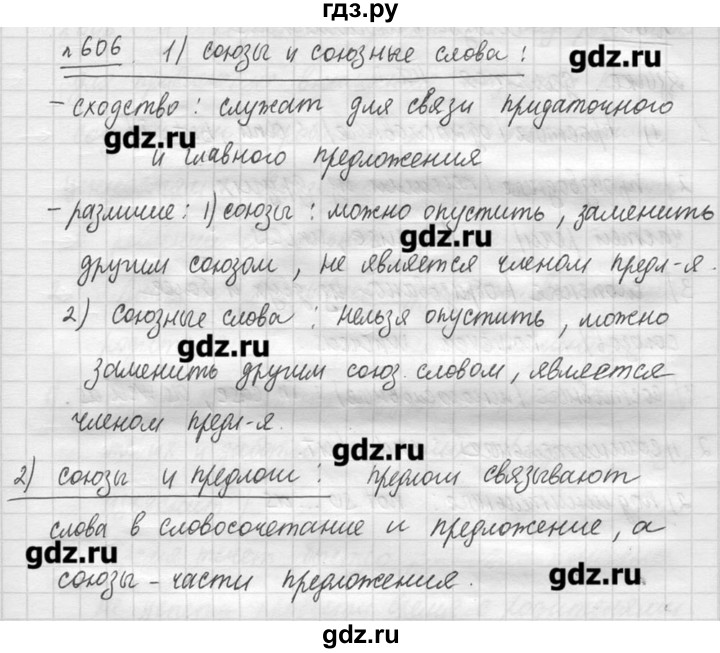 гдз.ру
№606 1) союзы и союзные слова:
gdz.ru
-сходство: служат для связи придаточного
gdz.ru
и главного предложения
-различие: 1) союзы: можно опустить, заменить
gdz.ru
другим союзом, не является членом предл-я.
2) Союзные слова: нельзя опустить, можно
gdz.ru
заменить другим союз. словом, является
членом предл-я.
gdz.ru
2) союзы и предлоги: предлоги связывают
слова в словосочетание и предложение, а
gdz.ru
союзы-части предложения.
gdz.ru
gdz.ru